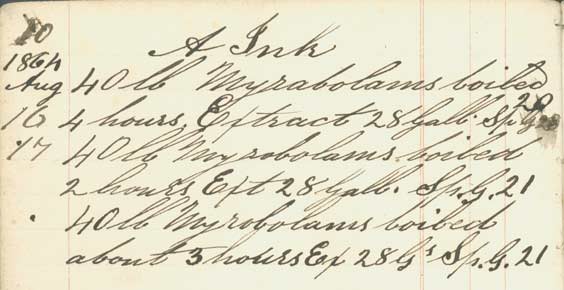 10
A Ink
1864
Aug 40 lb Myrabolams boiled
16 4 hours. Extract 28 Gall. Sp. G
17 40 lb Myrobolams boiled
2 hours Ext 28 Gall. Sp. G. 21
40 lb Myrobolams boiled
about 3 hours Ex 28 Gs Sp. G. 21